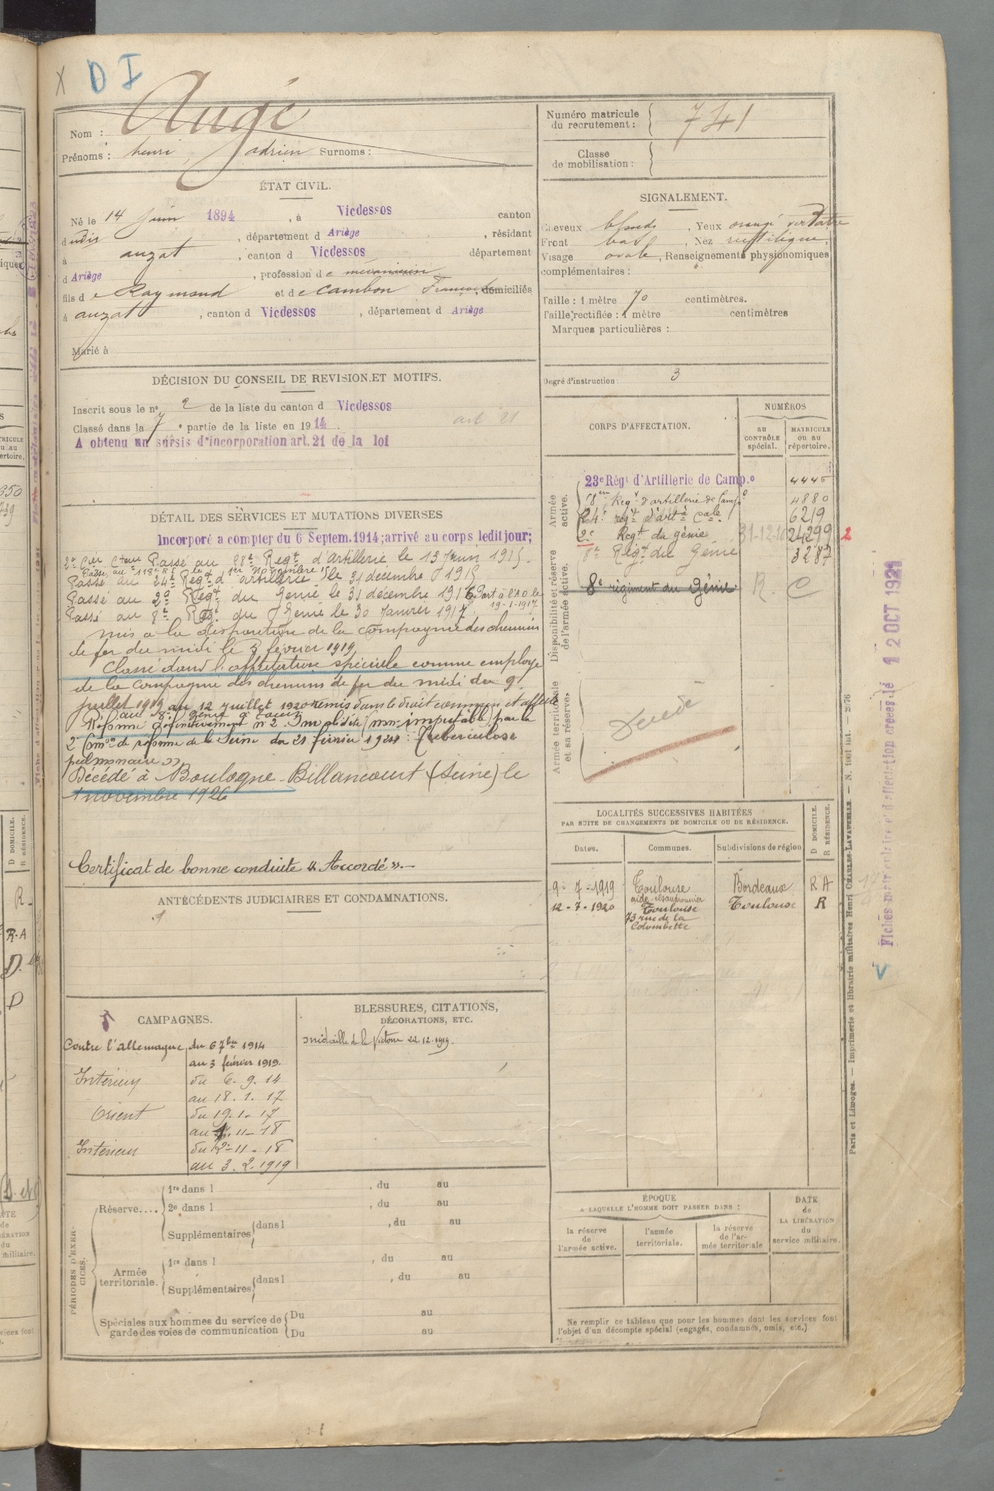 X D I
Nom : Augé
Prénoms : henri, adrien Surnoms :
Numéro matricule du recrutement : 741
Classe de mobilisation :
ÉTAT CIVIL.
Né le 14 Juin 1894, à Vicdessos canton
dudis, département d Ariège, résidant
à auzat, canton d Vicdessos département
d Ariège, profession de mécanicien
fils de Raymond et de Cambon Françoise, domiciliés
à auzat, canton d Vicdessos, département d Ariège
Marié à
SIGNALEMENT.
Cheveux blonds, Yeux orangé verdâtre
Front bas, Nez rectiligne
Visage ovale, Renseignements physionomiques
complémentaires :
Taille : 1 mètre 70 centimètres.
Taille rectifiée : 1 mètre centimètres
Marques particulières :
Degré d'instruction : 3
DÉCISION DU CONSEIL DE REVISION ET MOTIFS.
Inscrit sous le n° 2 de la liste du canton d Vicdessos
Classé dans la 7e partie de la liste en 1914. art 21
A obtenu un sursis d'incorporation art. 21 de la loi
DÉTAIL DES SERVICES ET MUTATIONS DIVERSES
Incorporé a compter du 6 Septem. 1914; arrivé au corps ledit jour;
2e Can Cteur Passé au 18e Regt d'Artillerie le 13 Juin 1915.
Passé au 24e Regt d'artillerie le 31 décembre 1915
Passé au 2e Regt du Génie le 31 décembre 1916. Part à l'A.O. le 19-1-1917
Passé au 8e Regt du Génie le 30 Janvier 1917.
Mis à la disposition de la Compagnie des chemins
de fer du midi le 3 février 1919.
Classé dans l'affectation spéciale comme employé
de la Compagnie des chemins de fer du midi du 9
juillet 1919 au 12 juillet 1920 remis dans le droit commun et affecté
au 8e Génie à Tours
Réformé définitivement n° 2. Invalidité, non imputable, par la
2e Comon de réforme de la Seine du 21 février 1924 : Tuberculose
pulmonaire »
Décédé à Boulogne-Billancourt (Seine) le
1 novembre 1926
Certificat de bonne conduite « Accordé ».
ANTÉCÉDENTS JUDICIAIRES ET CONDAMNATIONS.
CAMPAGNES.
Contre l'allemagne, du 6 7bre 1914
au 3 février 1919.
Intérieur du 6. 9. 14
au 18. 1. 17
Orient du 19. 1. 17
au 11-18
Intérieur du 12-11-18
au 3. 2. 1919
BLESSURES, CITATIONS,
DÉCORATIONS, ETC.
médaille de la Victoire 22.12.1919.
PÉRIODES D'EXERCICES.
Réserve....
1re dans l , du au
2e dans l , du au
Supplémentaires dans l , du au
Armée territoriale.
1re dans l , du au
Supplémentaires dans l , du au
Spéciales aux hommes du service de garde des voies de communication
Du au
Du au
CORPS D'AFFECTATION.
NUMÉROS
AU CONTRÔLE SPÉCIAL.
MATRICULE OU AU RÉPERTOIRE.
Armée active.
23e Régt d'Artillerie de Camp.e 4445
18e Regt d'artillerie de Campe 4880
24e regt d'arte Cale 6219
2e Regt du génie 31-12-16 24299 2
8e Regt du Génie 3287
Disponibilité et réserve de l'armée active.
8e régiment du Génie R. C
Armée territoriale et sa réserve.
Décédé
LOCALITÉS SUCCESSIVES HABITÉES
PAR SUITE DE CHANGEMENTS DE DOMICILE OU DE RÉSIDENCE.
Dates. Communes. Subdivisions de région D DOMICILE. R RÉSIDENCE.
9-7-1919 Toulouse Bordeaux R A
12-7-1920 Toulouse Toulouse R
73 rue de la
Colombette
ÉPOQUE
A LAQUELLE L'HOMME DOIT PASSER DANS :
la réserve de l'armée active.
l'armée territoriale.
la réserve de l'armée territoriale
DATE de LA LIBÉRATION du service militaire.
Ne remplir ce tableau que pour les hommes dont les services font
l'objet d'un décompte spécial (engagés, condamnés, omis, etc.)
Paris et Limoges. — Imprimerie et librairie militaires Henri CHARLES-LAVAUZELLE.
12 OCT 1921